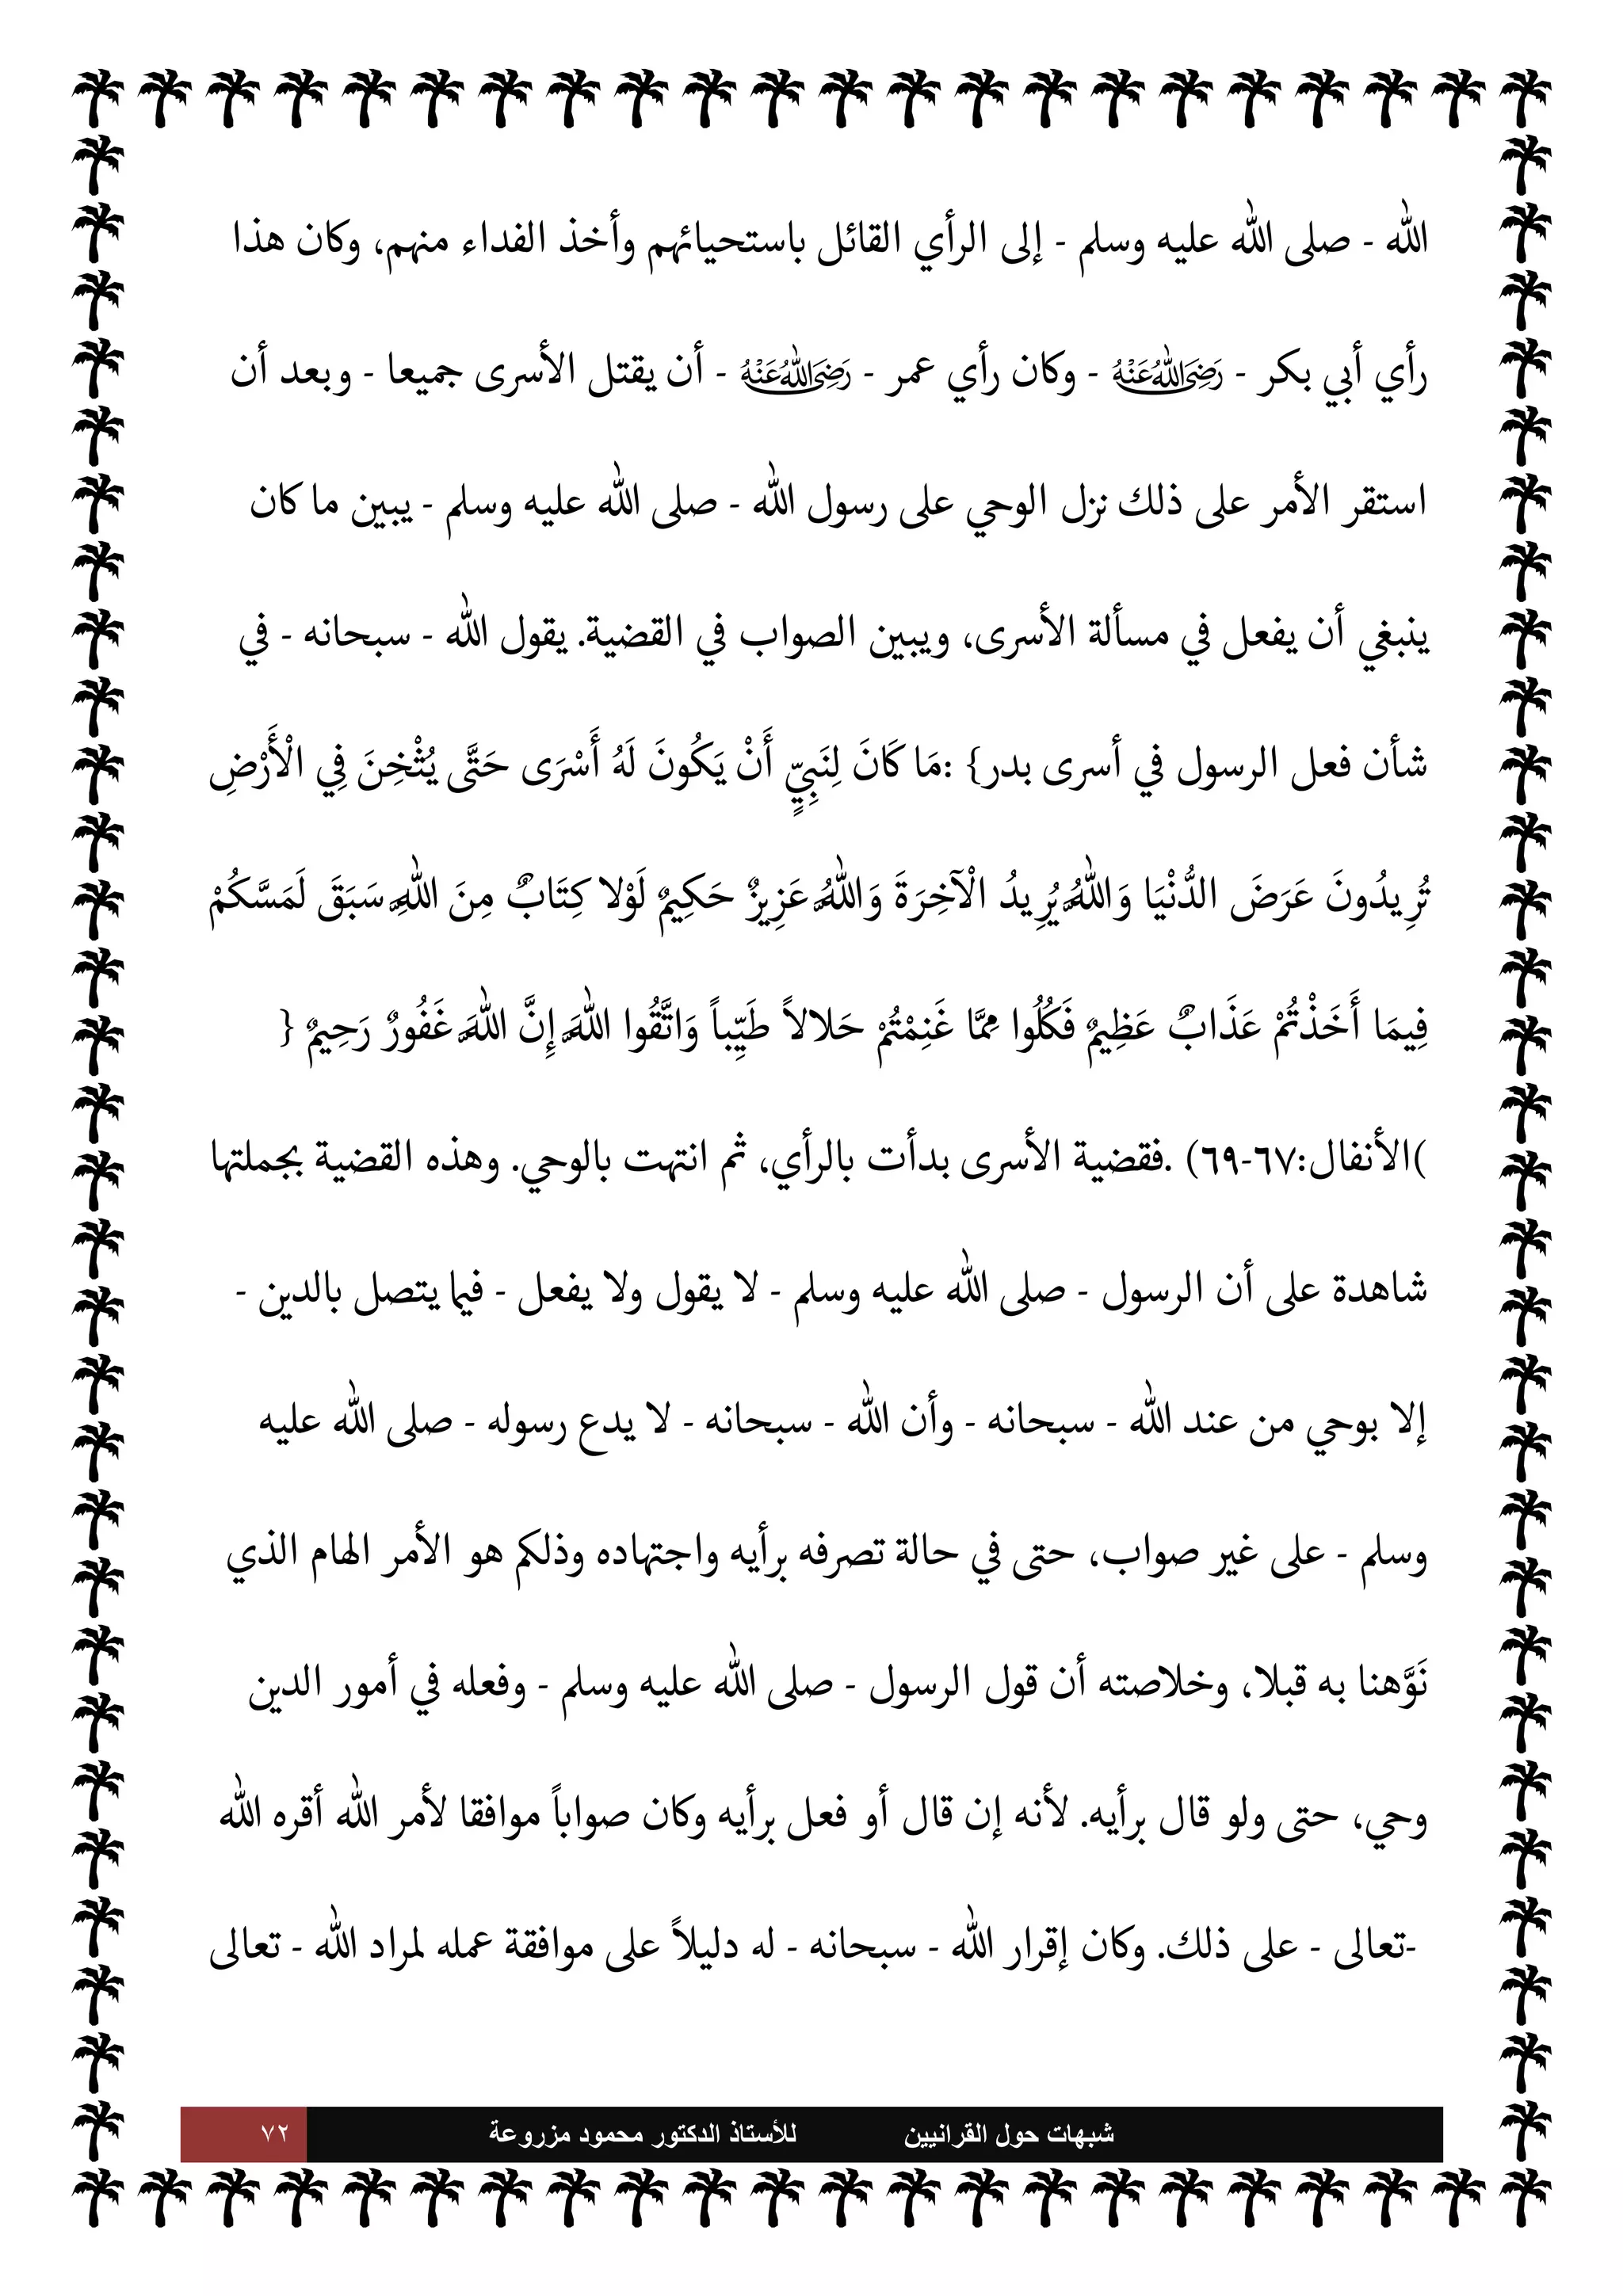 الله - صلى الله عليه وسلم - إلى الرأي القائل باستحيائهم وأخذ الفداء منهم، وكان هذا
رأي أبي بكر - رَضِيَ اللَّهُ عَنْهُ - وكان رأي عمر - رَضِيَ اللَّهُ عَنْهُ - أن يقتل الأسرى جميعا - وبعد أن
استقر الأمر على ذلك نزل الوحي على رسول الله - صلى الله عليه وسلم - يبين ما كان
ينبغي أن يفعل في مسألة الأسرى، ويبين الصواب في القضية. يقول الله - سبحانه - في
شأن فعل الرسول في أسرى بدر} :مَا كَانَ لِنَبِيٍّ أَنْ يَكُونَ لَهُ أَسْرَى حَتَّى يُثْخِنَ فِي الْأَرْضِ
تُرِيدُونَ عَرَضَ الدُّنْيَا وَاللَّهُ يُرِيدُ الْآخِرَةَ وَاللَّهُ عَزِيزٌ حَكِيمٌ لَوْلا كِتَابٌ مِنَ اللَّهِ سَبَقَ لَمَسَّكُمْ
فِيمَا أَخَذْتُمْ عَذَابٌ عَظِيمٌ فَكُلُوا مِمَّا غَنِمْتُمْ حَلالاً طَيِّباً وَاتَّقُوا اللَّهَ إِنَّ اللَّهَ غَفُورٌ رَحِيمٌ {
)الأنفال:٦٧-٦٩) .فقضية الأسرى بدأت بالرأي، ثم انتهت بالوحي. وهذه القضية بجملتها
شاهدة على أن الرسول - صلى الله عليه وسلم - لا يقول ولا يفعل - فيما يتصل بالدين -
إلا بوحي من عند الله - سبحانه - وأن الله - سبحانه - لا يدع رسوله - صلى الله عليه
وسلم - على غير صواب، حتى في حالة تصرفه برأيه واجتهاده وذلكم هو الأمر الهام الذي
نَوَّهنا به قبلا، وخلاصته أن قول الرسول - صلى الله عليه وسلم - وفعله في أمور الدين
وحي، حتى ولو قال برأيه. لأنه إن قال أو فعل برأيه وكان صواباً موافقا لأمر الله أقره الله
-تعالى - على ذلك. وكان إقرار الله - سبحانه - له دليلاً على موافقة عمله لمراد الله - تعالى
شبهات حول القرانيين للأستاذ الدكتور محمود مزروعة ٧٢